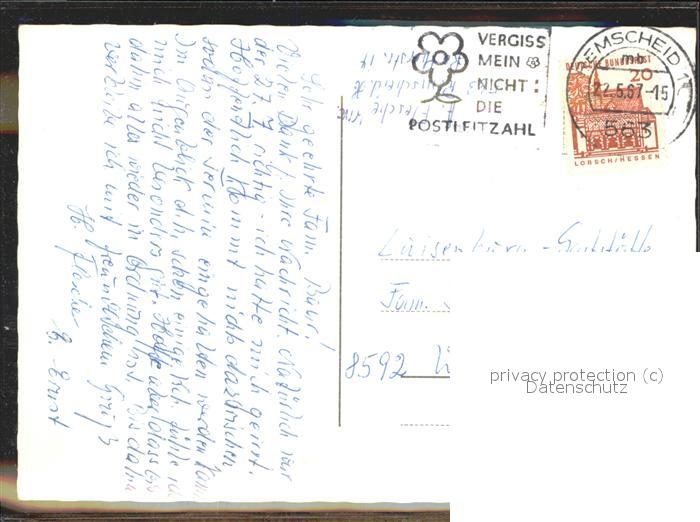 Sehr geehrte Fam. Baur!
Vielen Dank! Ihre Nachricht. Natürlich war
der 27. 7 richtig - ich hatte mich geirrt.
Hoffendlich kommt nichts dazwischen
sodass der Termin eingehalten werden kann
Im Augenblick d.h. schon einige Zeit fühle ich
mich nicht besonders gut. Hoffe aber dass bis
dahin alles wieder in Ordnung ist. Bis dahin
verbleibe ich mit freundlichem Gruß
H. Flesche
E. Ernst
VERGISS
MEIN
NICHT:
DIE
POSTLEITZAHL
REMSCHEID 11
mb
22.5.67-15
563
DEUTSCHE BUNDESPOST
20
LORSCH/HESSEN
H. Flesche
563 Remscheid
Luisenburg - Gaststätte
Fam.
8592
privacy protection (c)
Datenschutz